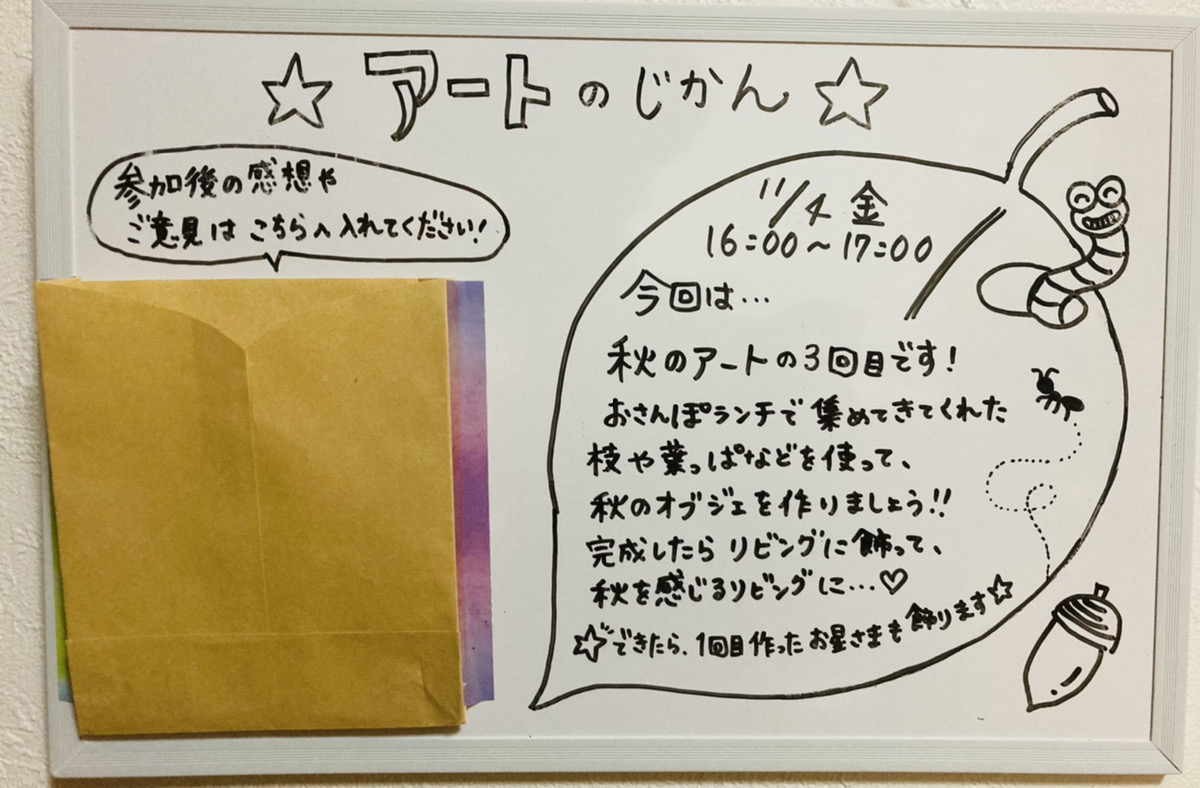 ☆ アートのじかん ☆
参加後の感想や
ご意見はこちらへ入れてください!
11/4 金
16:00～17:00
今回は…
秋のアートの3回目です!
おさんぽランチで集めてきてくれた
枝や葉っぱなどを使って、
秋のオブジェを作りましょう!!
完成したらリビングに飾って、
秋を感じるリビングに…♡
☆できたら、1回目作ったお星さまも飾ります☆